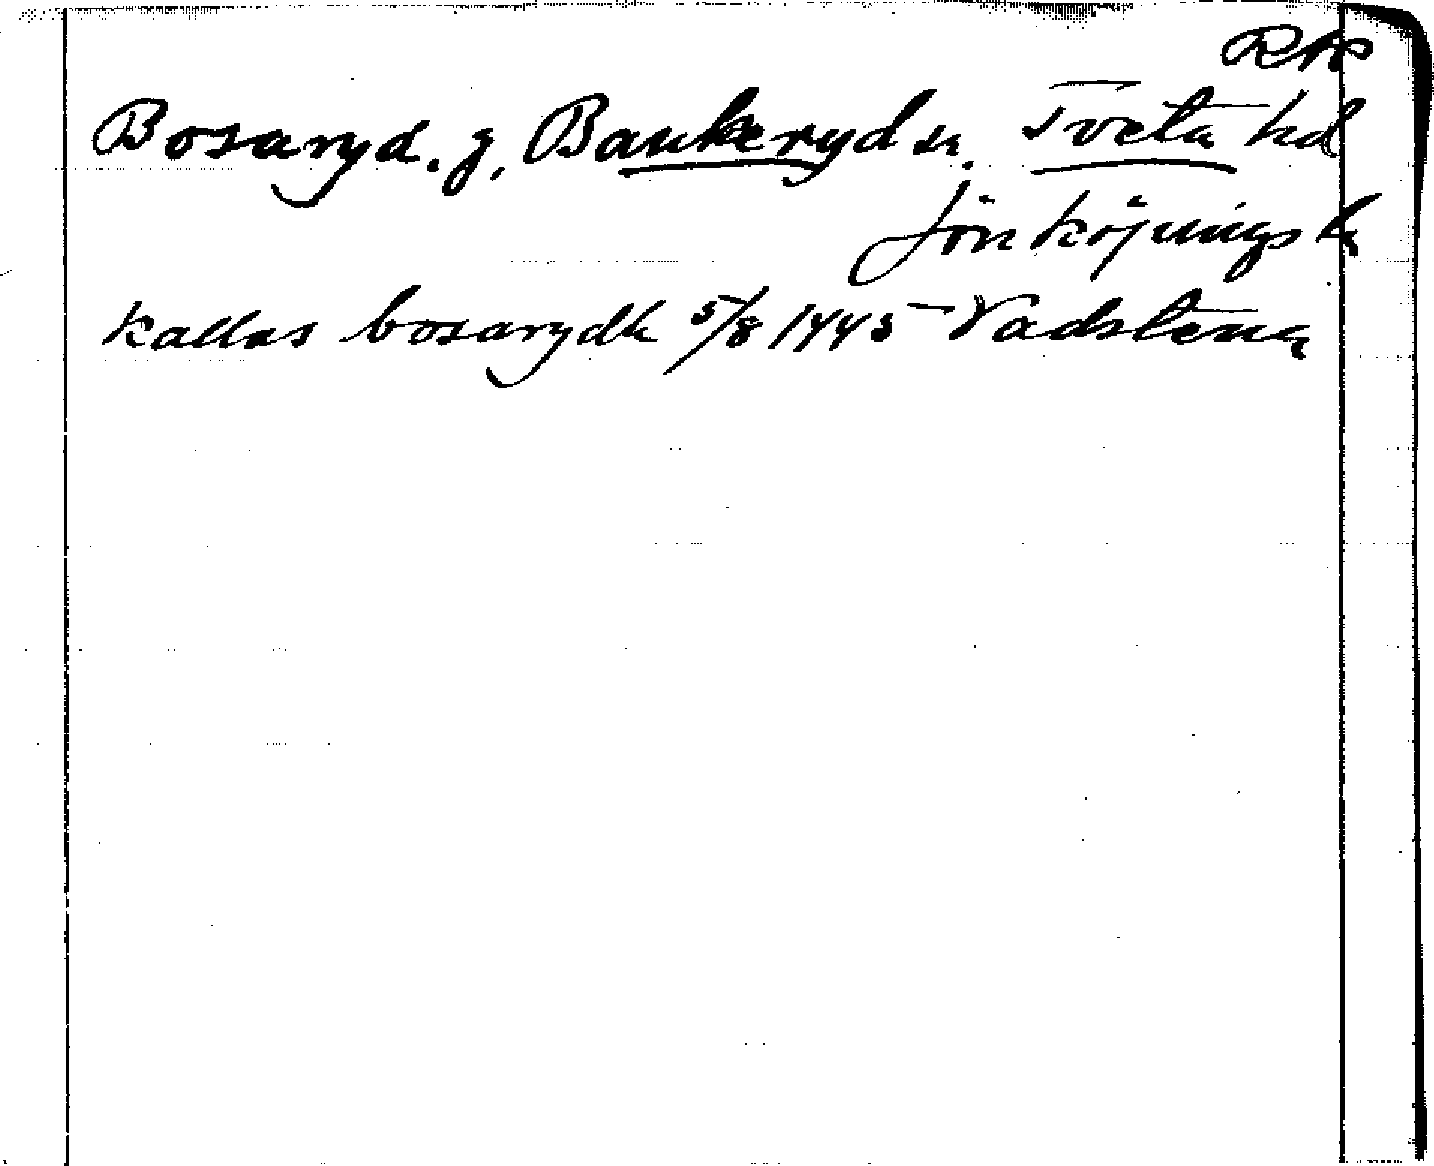 Rtp
Bosaryd. g. Bankeryd sn. Tveta hd
Jönköpings l.
kallas bosarydh 5/8 1445 Vadstena